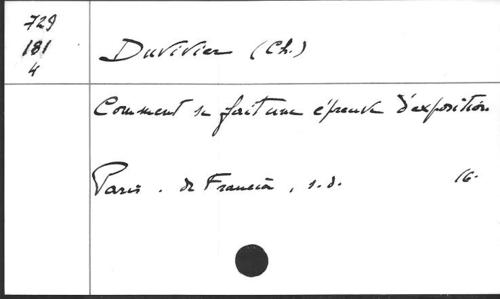 729
181
4
Duvivier (Ch.)
Comment se fait une épreuve d'exposition
Paris. de Francia, s.d. 16.